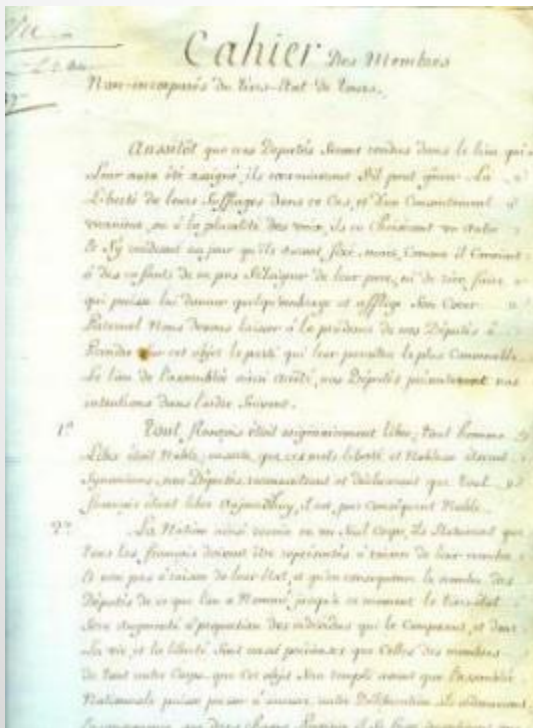 Cahier Des Membres
Non-incorporés du tiers-Etat de tours.
Aussitôt que nos Députés seront rendus dans le lieu qui
leur aura été assigné, ils examineront s'il peut gêner la
Liberté de leurs Suffrages dans ce Cas, et d'un Consentement
unanime, ou à la pluralité des voix, ils en Choisiront un autre
et s'y rendront au jour qu'ils auront fixé, mais, Comme il Convient
à des enfants de ne pas s'éloigner de leur pere, ni de rien faire
qui puisse lui donner quelqu'ombrage et afflige Son Coeur
Paternel Nous devons laisser à la prudence de nos Députés à
Prendre sur cet objet le parti qui leur paroitra le plus Convenable.
Le lieu de l'assemblée ainsi arrêté, nos Députés présenteront nos
intentions dans l'ordre Suivant.
1º Tout françois étoit originairement libre; tout homme
Libre étoit Noble; ensorte, que ces mots liberté et Noblesse étoient
Synonimes, nos Députés reconnoitront et déclareront que tout
françois étant libre Aujourd'huy, il est, par Conséquent Noble.
2º La Nation ainsi réunie en un Seul Corps, Ils Statueront que
tous les françois doivent être représentés à raison de leur nombre
et non pas à raison de leur Etat, et qu'en consequence le nombre des
Députés de ce que l'on a Nommé jusqu'à ce moment le tiers-état
Sera augmenté à proportion des individus qui le Composent, et dont
La vie, et la liberté Sont aussi précieuses que Celles des membres
de tout autre Corps. que Cet objet Sera rempli avant que l'assemblée
Nationale puisse passer à aucune autre Délibération